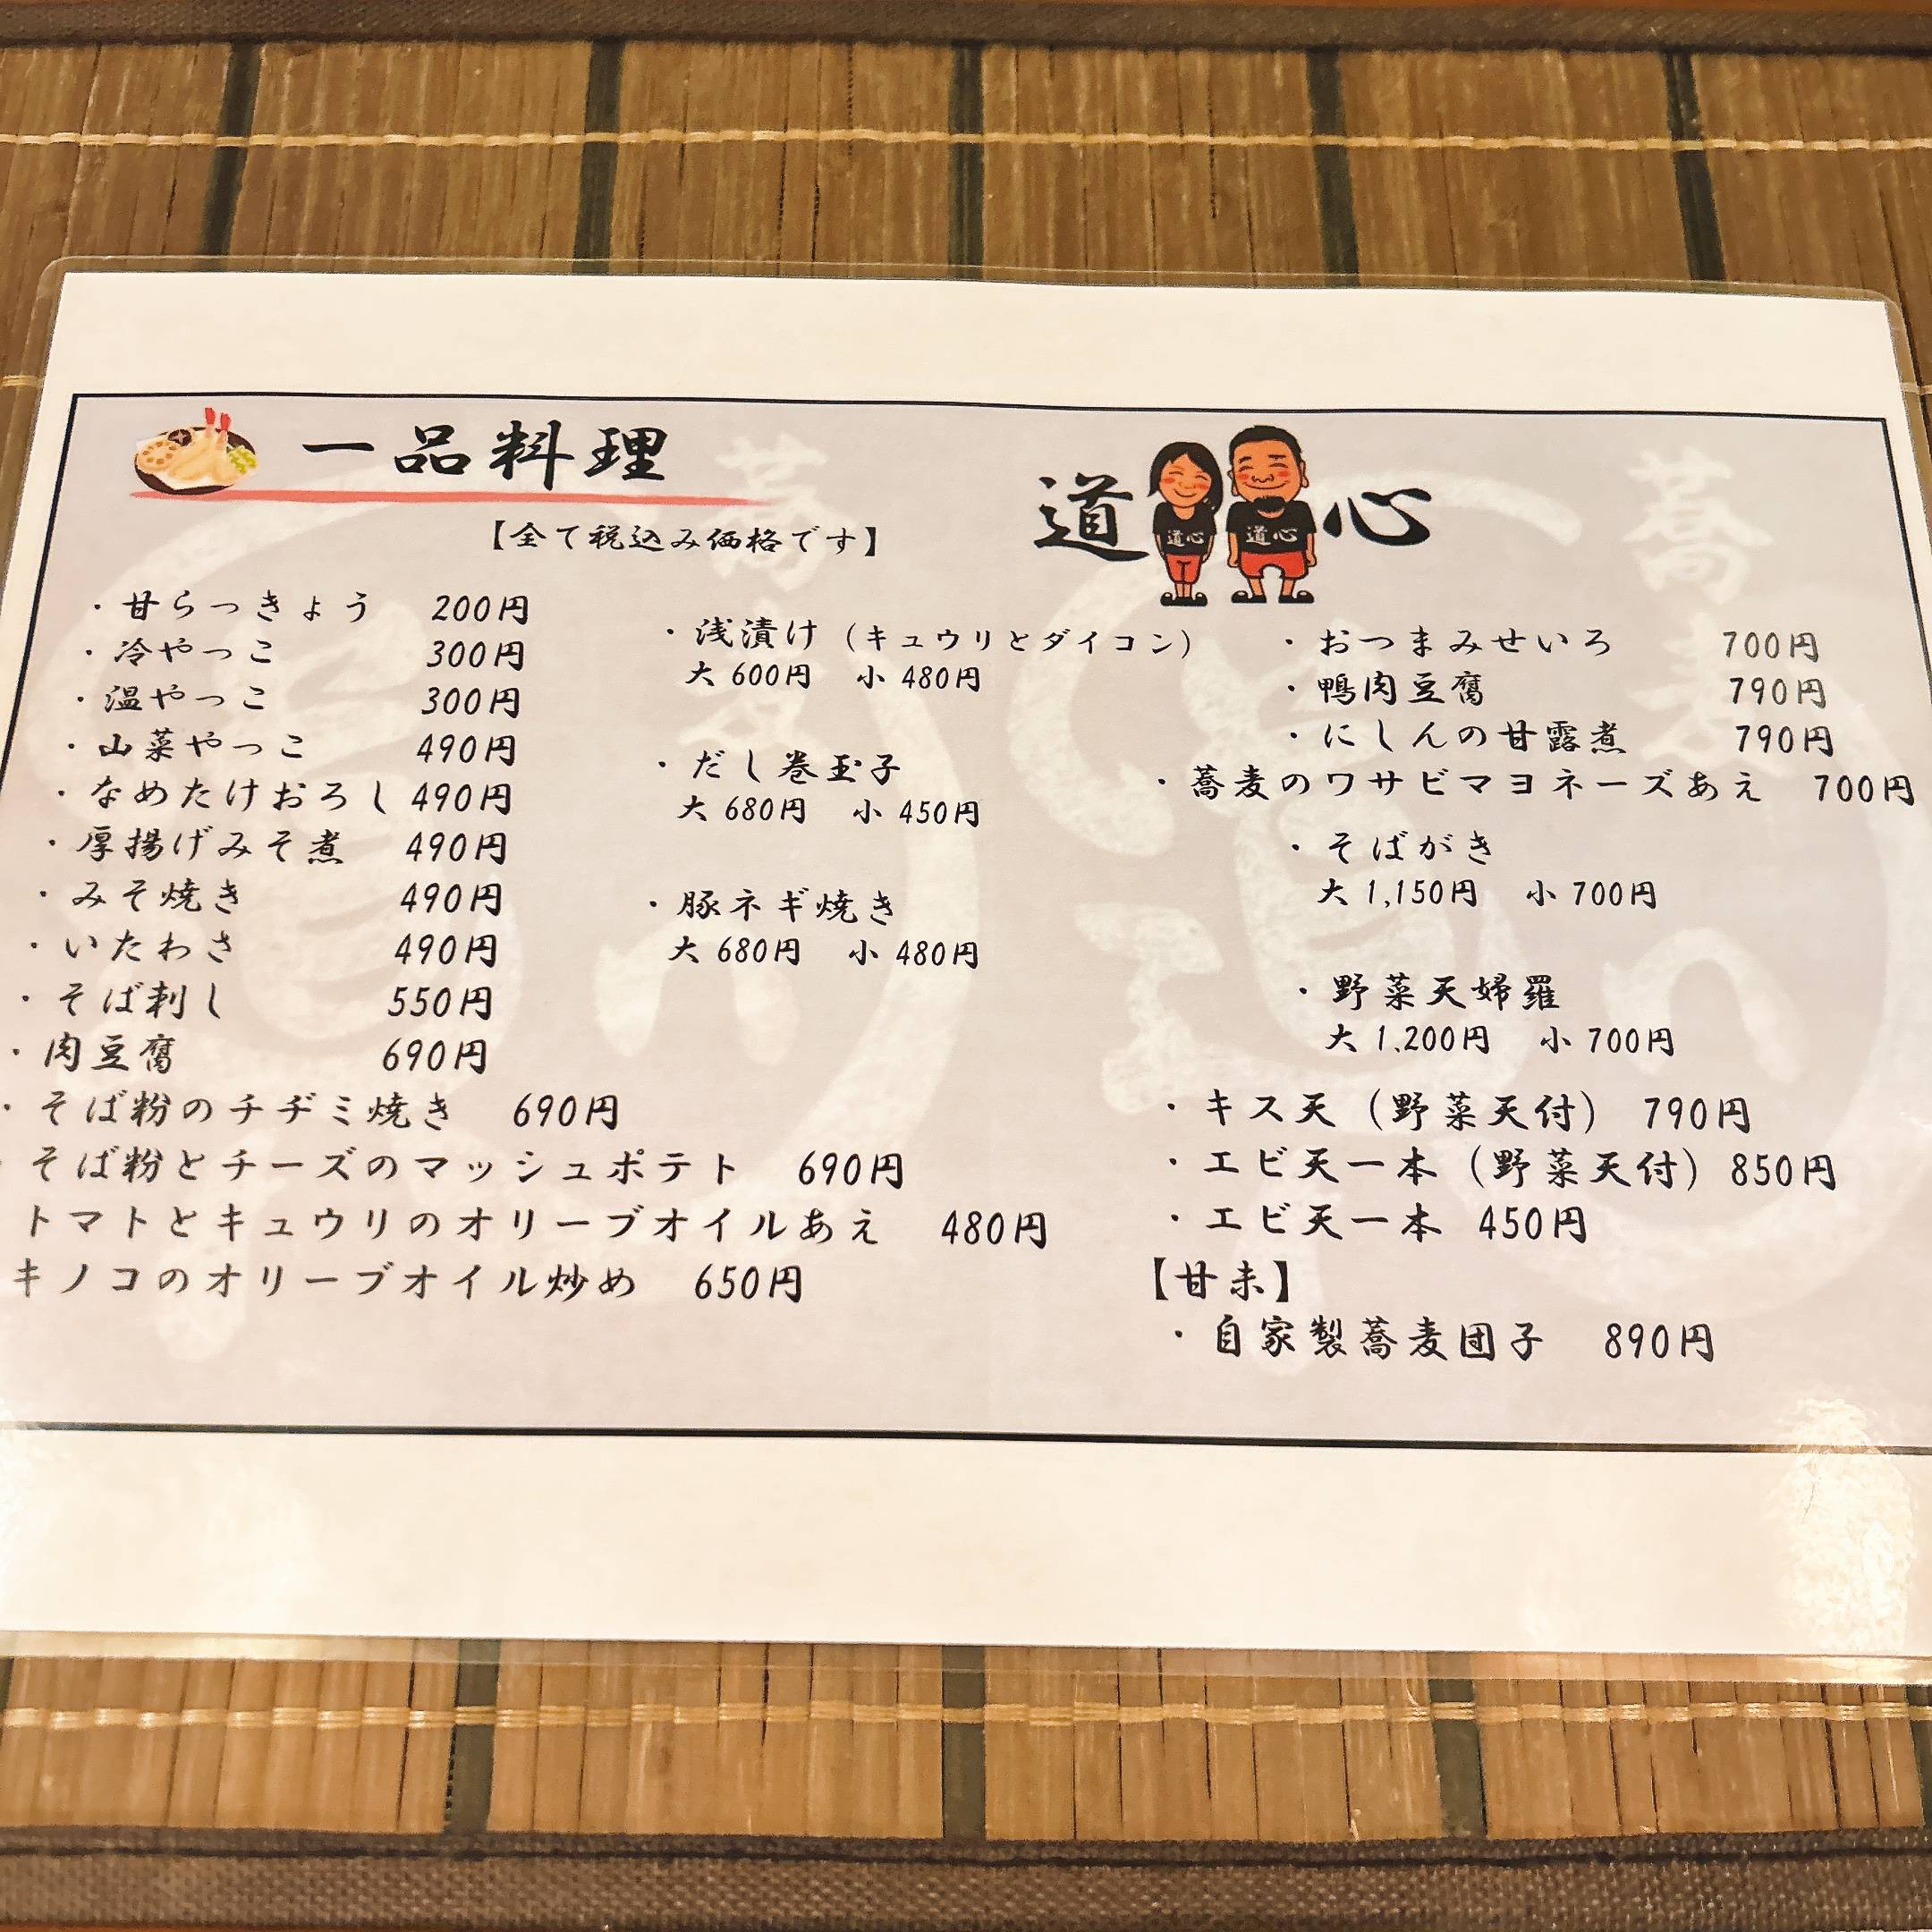 一品料理
【全て税込み価格です】
・甘らっきょう 200円
・冷やっこ 300円
・温やっこ 300円
・山菜やっこ 490円
・なめたけおろし 490円
・厚揚げみそ煮 490円
・みそ焼き 490円
・いたわさ 490円
・そば刺し 550円
・肉豆腐 690円
・そば粉のチヂミ焼き 690円
・そば粉とチーズのマッシュポテト 690円
トマトとキュウリのオリーブオイルあえ 480円
キノコのオリーブオイル炒め 650円
・浅漬け（キュウリとダイコン）
大 600円 小 480円
・だし巻玉子
大 680円 小 450円
・豚ネギ焼き
大 680円 小 480円
道心
道心
道心
・おつまみせいろ 700円
・鴨肉豆腐 790円
・にしんの甘露煮 790円
・蕎麦のワサビマヨネーズあえ 700円
・そばがき
大 1,150円 小 700円
・野菜天婦羅
大 1,200円 小 700円
・キス天（野菜天付） 790円
・エビ天一本（野菜天付）850円
・エビ天一本 450円
【甘未】
・自家製蕎麦団子 890円